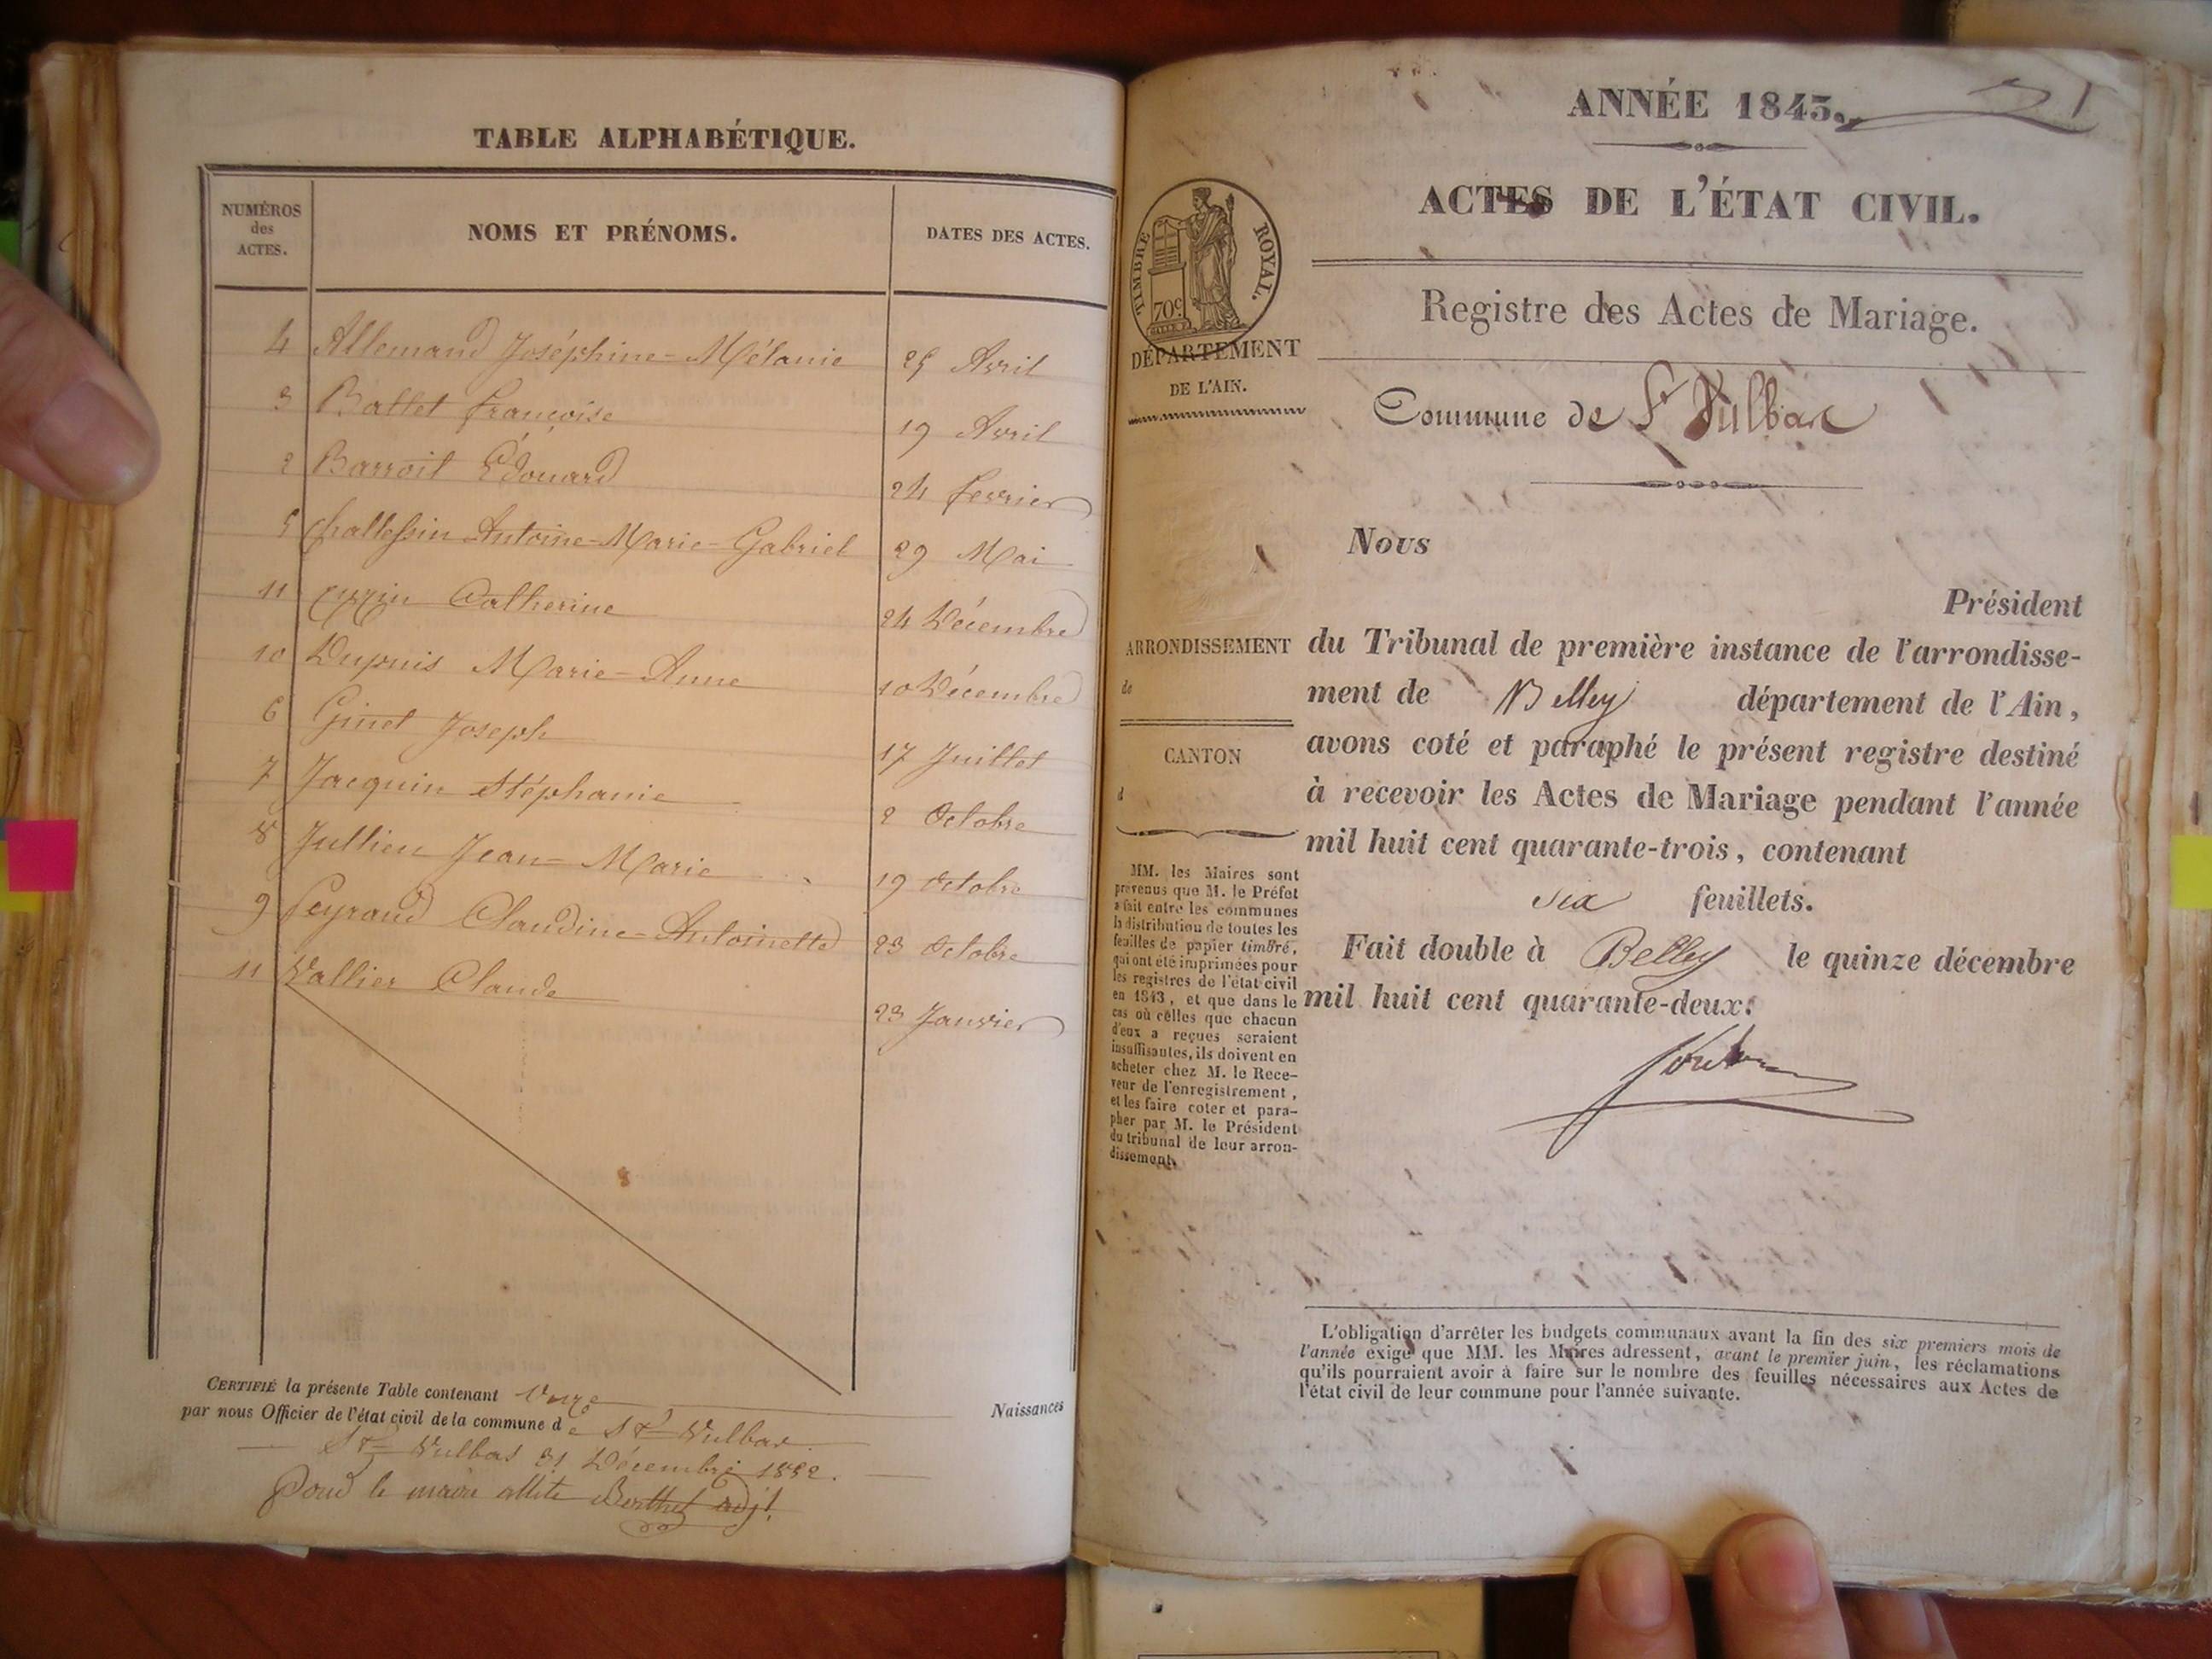 TABLE ALPHABÉTIQUE.
NUMÉROS des ACTES.
NOMS ET PRÉNOMS.
DATES DES ACTES.
4 Allemand Joséphine-Mélanie 25 Avril
3 Ballet françoise 19 Avril
2 Barroit Édouard 24 fevrier
5 Challessin Antoine-Marie-Gabriel 29 Mai
11 Catherine 24 Décembre
10 Dupuis Marie-Anne 10 Décembre
6 Ginet Joseph 17 Juillet
7 Jacquin Stéphanie 2 Octobre
8 Jullien Jean-Marie 19 Octobre
9 Peyraud Claudine-Antoinette 23 Octobre
11 Vallier Claude 23 Janvier
CERTIFIÉ la présente Table contenant onze Naissances
par nous Officier de l'état civil de la commune de St Vulbas
St Vulbas 31 Décembre 1852.
Pour le maire Berthet adjt
ANNÉE 1843.
ACTES DE L'ÉTAT CIVIL.
TIMBRE ROYAL.
70c
DÉPARTEMENT
DE L'AIN.
Registre des Actes de Mariage.
Commune de St Vulbas
Nous
Président
ARRONDISSEMENT
de
CANTON
d
du Tribunal de première instance de l'arrondisse-
ment de Belley département de l'Ain,
avons coté et paraphé le présent registre destiné
à recevoir les Actes de Mariage pendant l'année
mil huit cent quarante-trois, contenant
six feuillets.
Fait double à Belley le quinze décembre
mil huit cent quarante-deux.
MM. les Maires sont
prévenus que M. le Préfet
a fait entre les communes
la distribution de toutes les
feuilles de papier timbré,
qui ont été imprimées pour
les registres de l'état civil
en 1843, et que dans le
cas où celles que chacun
d'eux a reçues seraient
insuffisantes, ils doivent en
acheter chez M. le Rece-
veur de l'enregistrement,
et les faire coter et para-
pher par M. le Président
du tribunal de leur arron-
dissement.
L'obligation d'arrêter les budgets communaux avant la fin des six premiers mois de
l'année exige que MM. les Maires adressent, avant le premier juin, les réclamations
qu'ils pourraient avoir à faire sur le nombre des feuilles nécessaires aux Actes de
l'état civil de leur commune pour l'année suivante.